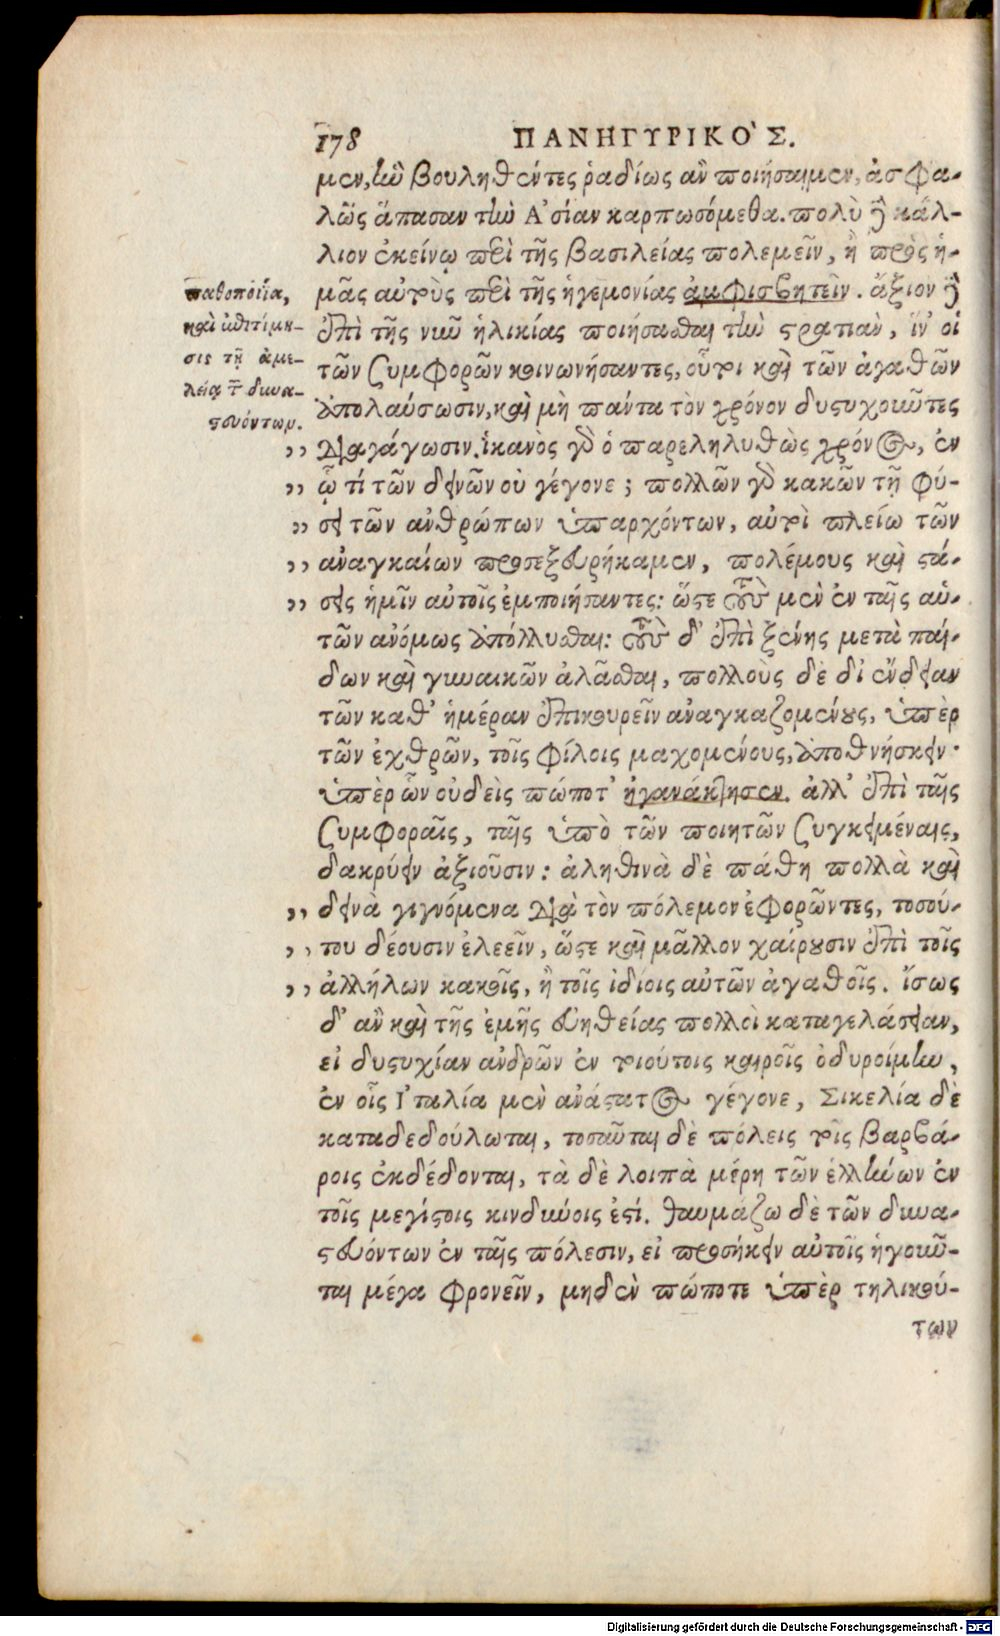 178 ΠΑΝΗΓΥΡΙΚΟ'Σ.
μεν, ἢν βουληθέντες ῥᾳδίως ἂν ποιήσαιμεν, ἀσφα-
λῶς ἅπασαν τὴν Ἀσίαν καρπωσόμεθα. πολὺ δὲ κάλ-
λιον ἐκείνῳ περὶ τῆς βασιλείας πολεμεῖν, ἢ πρὸς ἡ-
μᾶς αὐτοὺς περὶ τῆς ἡγεμονίας ἀμφισβητεῖν. ἄξιον δὲ
ἐπὶ τῆς νῦν ἡλικίας ποιήσασθαι τὴν στρατιὰν, ἵν' οἱ
τῶν συμφορῶν κοινωνήσαντες, οὗτοι καὶ τῶν ἀγαθῶν
ἀπολαύσωσιν, καὶ μὴ πάντα τὸν χρόνον δυστυχοῦντες
διαγάγωσιν. ἱκανὸς γὰρ ὁ παρεληλυθὼς χρόνος, ἐν
ᾧ τί τῶν δεινῶν οὐ γέγονε; πολλῶν γὰρ κακῶν τῇ φύ-
σει τῶν ἀνθρώπων ὑπαρχόντων, αὐτοὶ πλείω τῶν
ἀναγκαίων προσεξευρήκαμεν, πολέμους καὶ στά-
σεις ἡμῖν αὐτοῖς ἐμποιήσαντες: ὥστε τοὺς μὲν ἐν ταῖς αὑ-
τῶν ἀνόμως ἀπόλλυσθαι: τοὺς δ' ἐπὶ ξένης μετὰ παί-
δων καὶ γυναικῶν ἀλᾶσθαι, πολλοὺς δὲ δι' ἔνδειαν
τῶν καθ' ἡμέραν ἐπικουρεῖν ἀναγκαζομένους, ὑπὲρ
τῶν ἐχθρῶν, τοῖς φίλοις μαχομένους, ἀποθνήσκειν·
ὑπὲρ ὧν οὐδεὶς πώποτ' ἠγανάκτησεν. ἀλλ' ἐπὶ ταῖς
συμφοραῖς, ταῖς ὑπὸ τῶν ποιητῶν συγκειμέναις,
δακρύειν ἀξιοῦσιν: ἀληθινὰ δὲ πάθη πολλὰ καὶ
δεινὰ γιγνόμενα διὰ τὸν πόλεμον ἐφορῶντες, τοσού-
του δέουσιν ἐλεεῖν, ὥστε καὶ μᾶλλον χαίρουσιν ἐπὶ τοῖς
ἀλλήλων κακοῖς, ἢ τοῖς ἰδίοις αὐτῶν ἀγαθοῖς. ἴσως
δ' ἂν καὶ τῆς ἐμῆς εὐηθείας πολλοὶ καταγελάσειαν,
εἰ δυστυχίαν ἀνδρῶν ἐν τοιούτοις καιροῖς ὀδυροίμην,
ἐν οἷς Ἰταλία μὲν ἀνάστατος γέγονε, Σικελία δὲ
καταδεδούλωται, τοσαῦται δὲ πόλεις τοῖς βαρβά-
ροις ἐκδέδονται, τὰ δὲ λοιπὰ μέρη τῶν ἑλλήνων ἐν
τοῖς μεγίστοις κινδύνοις ἐστί. θαυμάζω δὲ τῶν δυνα-
στευόντων ἐν ταῖς πόλεσιν, εἰ προσήκειν αὐτοῖς ἡγοῦν-
ται μέγα φρονεῖν, μηδὲν πώποτε ὑπὲρ τηλικού-
των
παθοποιΐα,
καὶ ἐπιτίμη-
σις τῇ ἀμε-
λείᾳ τῶν δυνα-
στευόντων.
Digitalisierung gefördert durch die Deutsche Forschungsgemeinschaft - DFG